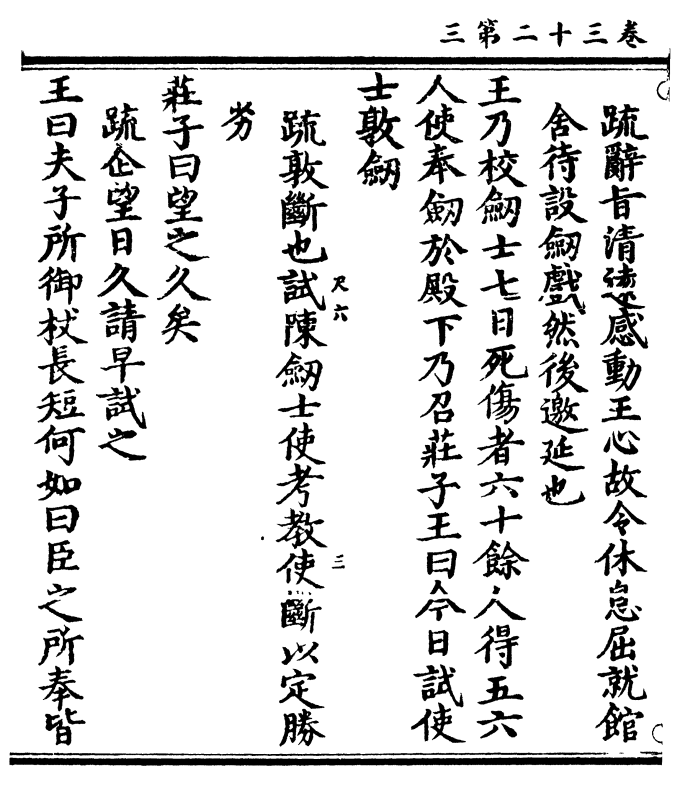 卷三十二第三
疏辭旨清遠感動王心故令休息屈就館
舍待設劒戲然後邀延也
王乃校劒士七日死傷者六十餘人得五六
人使奉劒於殿下乃召莊子王曰今日試使
士敦劒
尺六
三
疏敦斷也試陳劒士使考教使斷以定勝
劣
莊子曰望之久矣
疏企望日久請早試之
王曰夫子所御杖長短何如曰臣之所奉皆